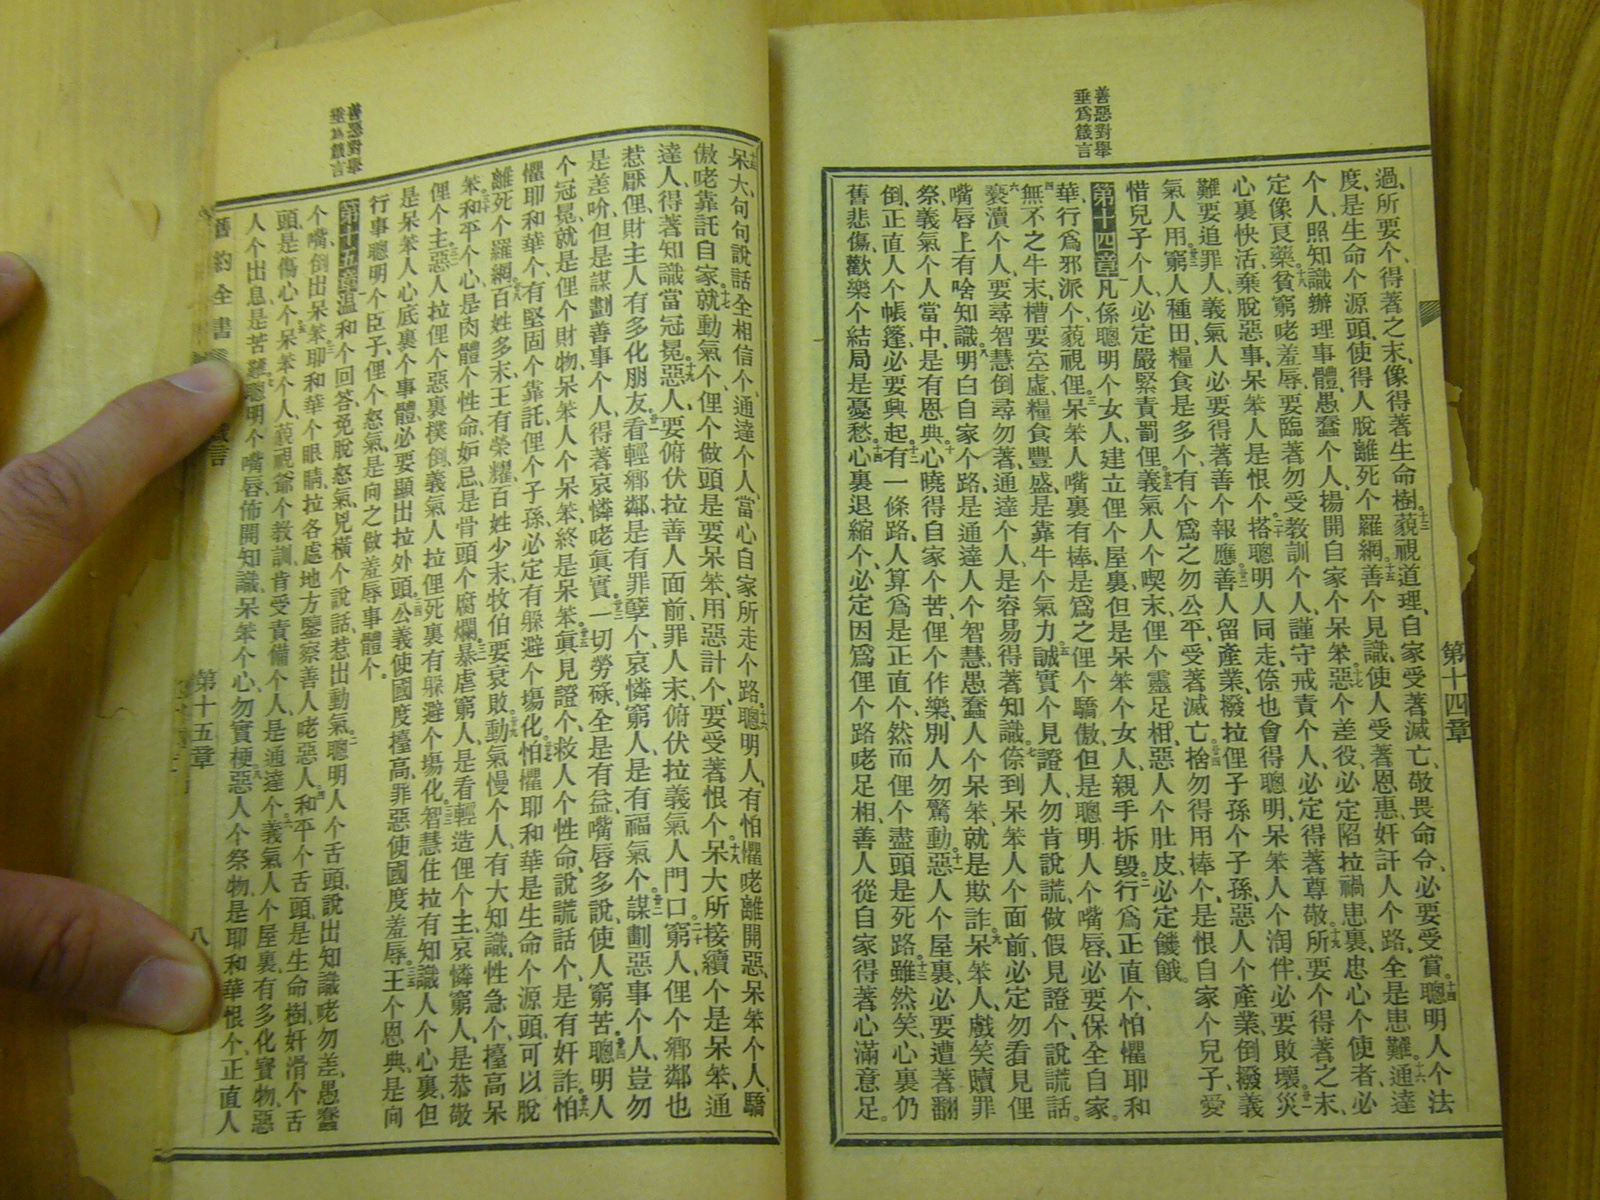 善惡對舉
垂爲箴言
第十四章
過、所要个、得著之末、像得著生命樹。十三藐視道理、自家受著滅亡、敬畏命令、必要受賞。十四聰明人个法
度、是生命个源頭、使得人脫離死个羅網。十五善个見識、使人受著恩惠、奸訐人个路、全是患難。十六通達
个人、照知識辦理事體、愚蠢个人、揚開自家个呆笨。十七惡个差役、必定陷拉禍患裏、忠心个使者、必
定像良藥。十八貧窮咾羞辱、要臨著勿受教訓个人、謹守戒責个人、必定得著尊敬。十九所要个得著之末、
心裏快活、棄脫惡事、呆笨人是恨个。二十搭聰明人同走、倷也會得聰明、呆笨人个潤伴、必要敗壞。廿一災
難要追罪人、義氣人必要得著善个報應。廿二善人留產業撥拉俚子孫个子孫、惡人个產業、倒撥義
氣人用。廿三窮人種田、糧食是多个、有个爲之勿公平、受著滅亡。廿四捨勿得用棒个、是恨自家个兒子、愛
惜兒子个人、必定嚴緊責罰俚。廿五義氣人个喫末、俚个靈足相、惡人个肚皮、必定饑餓。
第十四章一凡係聰明个女人、建立俚个屋裏、但是呆笨个女人、親手拆毀。二行爲正直个、怕懼耶和
華、行爲邪派个、藐視俚。三呆笨人嘴裏有棒、是爲之俚个驕傲、但是聰明人个嘴唇、必要保全自家。
四無不之牛末、槽要空虛、糧食豐盛、是靠牛个氣力。五誠實个見證人勿肯說謊、做假見證个、說謊話。
六褻瀆个人、要尋智慧倒尋勿著、通達个人、是容易得著知識。七倷到呆笨人个面前、必定勿看見俚
嘴唇上有啥知識。八明白自家个路、是通達人个智慧、愚蠢人个呆笨、就是欺詐。九呆笨人、戲笑贖罪
祭、義氣个人當中、是有恩典。十心曉得自家个苦、俚个作樂、別人勿驚動。十一惡人个屋裏、必要遭著翻
倒、正直人个帳篷、必要興起。十二有一條路、人算爲是正直个、然而俚个盡頭是死路。十三雖然笑、心裏仍
舊悲傷、歡樂个結局、是憂愁。十四心裏退縮个、必定因爲俚个路咾足相、善人從自家得著心滿意足。
善惡對舉
垂爲箴言
十五呆大句句說話全相信个、通達个人、當心自家所走个路。十六聰明人、有怕懼咾離開惡、呆笨个人、驕
傲咾靠託自家。十七就動氣个、俚个做頭是要呆笨、用惡計个、要受著恨个。十八呆大所接續个是呆笨、通
達人、得著知識當冠冕。十九惡人、要俯伏拉善人面前、罪人末、俯伏拉義氣人門口。二十窮人、俚个鄉鄰也
惹厭俚、財主人有多化朋友。廿一看輕鄉鄰、是有罪孽个、哀憐窮人、是有福氣个。廿二謀劃惡事个人、豈勿
是差吤、但是謀劃善事个人、得著哀憐咾眞實。廿三一切勞碌、全是有益、嘴唇多說、使人窮苦。廿四聰明人
个冠冕、就是俚个財物、呆笨人个呆笨、終是呆笨。廿五眞見證个、救人个性命、說謊話个、是有奸詐。廿六怕
懼耶和華个、有堅固个靠託、俚个子孫、必定有躲避个場化。廿七怕懼耶和華、是生命个源頭、可以脫
離死个羅網。廿八百姓多末、王有榮耀、百姓少末、牧伯要衰敗。廿九動氣慢个人、有大知識、性急个、擡高呆
笨。三十和平个心、是肉體个性命、妒忌、是骨頭个腐爛。三一暴虐窮人、是看輕造俚个主、哀憐窮人、是恭敬
俚个主。三二惡人拉俚个惡裏撲倒、義氣人拉俚死裏有躲避个場化。三三智慧住拉有知識人个心裏、但
是呆笨人心底裏个事體、必要顯出拉外頭。三四公義使國度擡高、罪惡使國度羞辱。三五王个恩典、是向
行事聰明个臣子、俚个怒氣、是向之做羞辱事體个。
第十五章一溫和个回答、免脫怒氣、兇橫个說話、惹出動氣。二聰明人个舌頭、說出知識咾勿差、愚蠢
个嘴、倒出呆笨。三耶和華个眼睛、拉各處地方鑒察善人咾惡人。四和平个舌頭、是生命樹、奸滑个舌
頭、是傷心个。五呆笨个人、藐視爺个教訓、肯受責備个人、是通達个。六義氣人个屋裏、有多化寶物、惡
人个出息、是苦難。七聰明个嘴唇、佈開知識、呆笨个心、勿實梗。八惡人个祭物、是耶和華恨个、正直人
舊約全書
箴言
第十五章
八